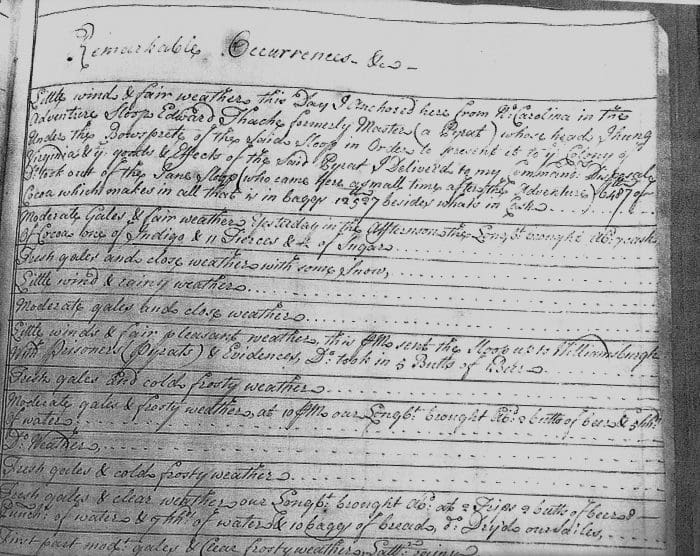 Remarkable Occurrences &c
Little wind & fair weather this Day I Anchored here from No: Carolina in the
Adventure Sloop Edward Thache formerly Master (a Pyrat) whose head I hung
Under the Bowsprete of the Said Sloop in Order to present it to ye Colony of
Virginia & ye goods & Effects of the Said Pyrat I Deliver'd to my Commandrs
Do took out of the Jane Sloop (who came here a small time after the Adventure) 6487 of
Cocoa which makes in all that is in baggs 12527 besides whats in Cask
Moderate Gales & fair weather Yesterday in the Affternoon the Longbt: brought abd: 7 cask
of Cocoa one of Indigo & 11 Tierces & of Sugar
Fresh gales and close weather with some Snow
Little wind & rainy weather
Moderate gales and close weather
Little winds & fair pleasant weather this sent the Sloop up to Williamsburgh
With Prisoners (Pyrats) & Evidences, Do: took in 5 Butts of Beer
Fresh gales and cold frosty weather
Moderate gales & frosty weather, at 10 our Longbt: brought abd: 2 butts of beer & 5 hhds:
of water
Do: Weather
Fresh gales & cold frosty weather
Fresh gales & clear weather our Longbt: brought abd: at 2 Trips 2 butts of beer 8
Punchs: of water & 9 hhds: of water & 10 baggs of bread, Do: Dryd our Sailes
First part modt: gales & Clear frosty weather rainy